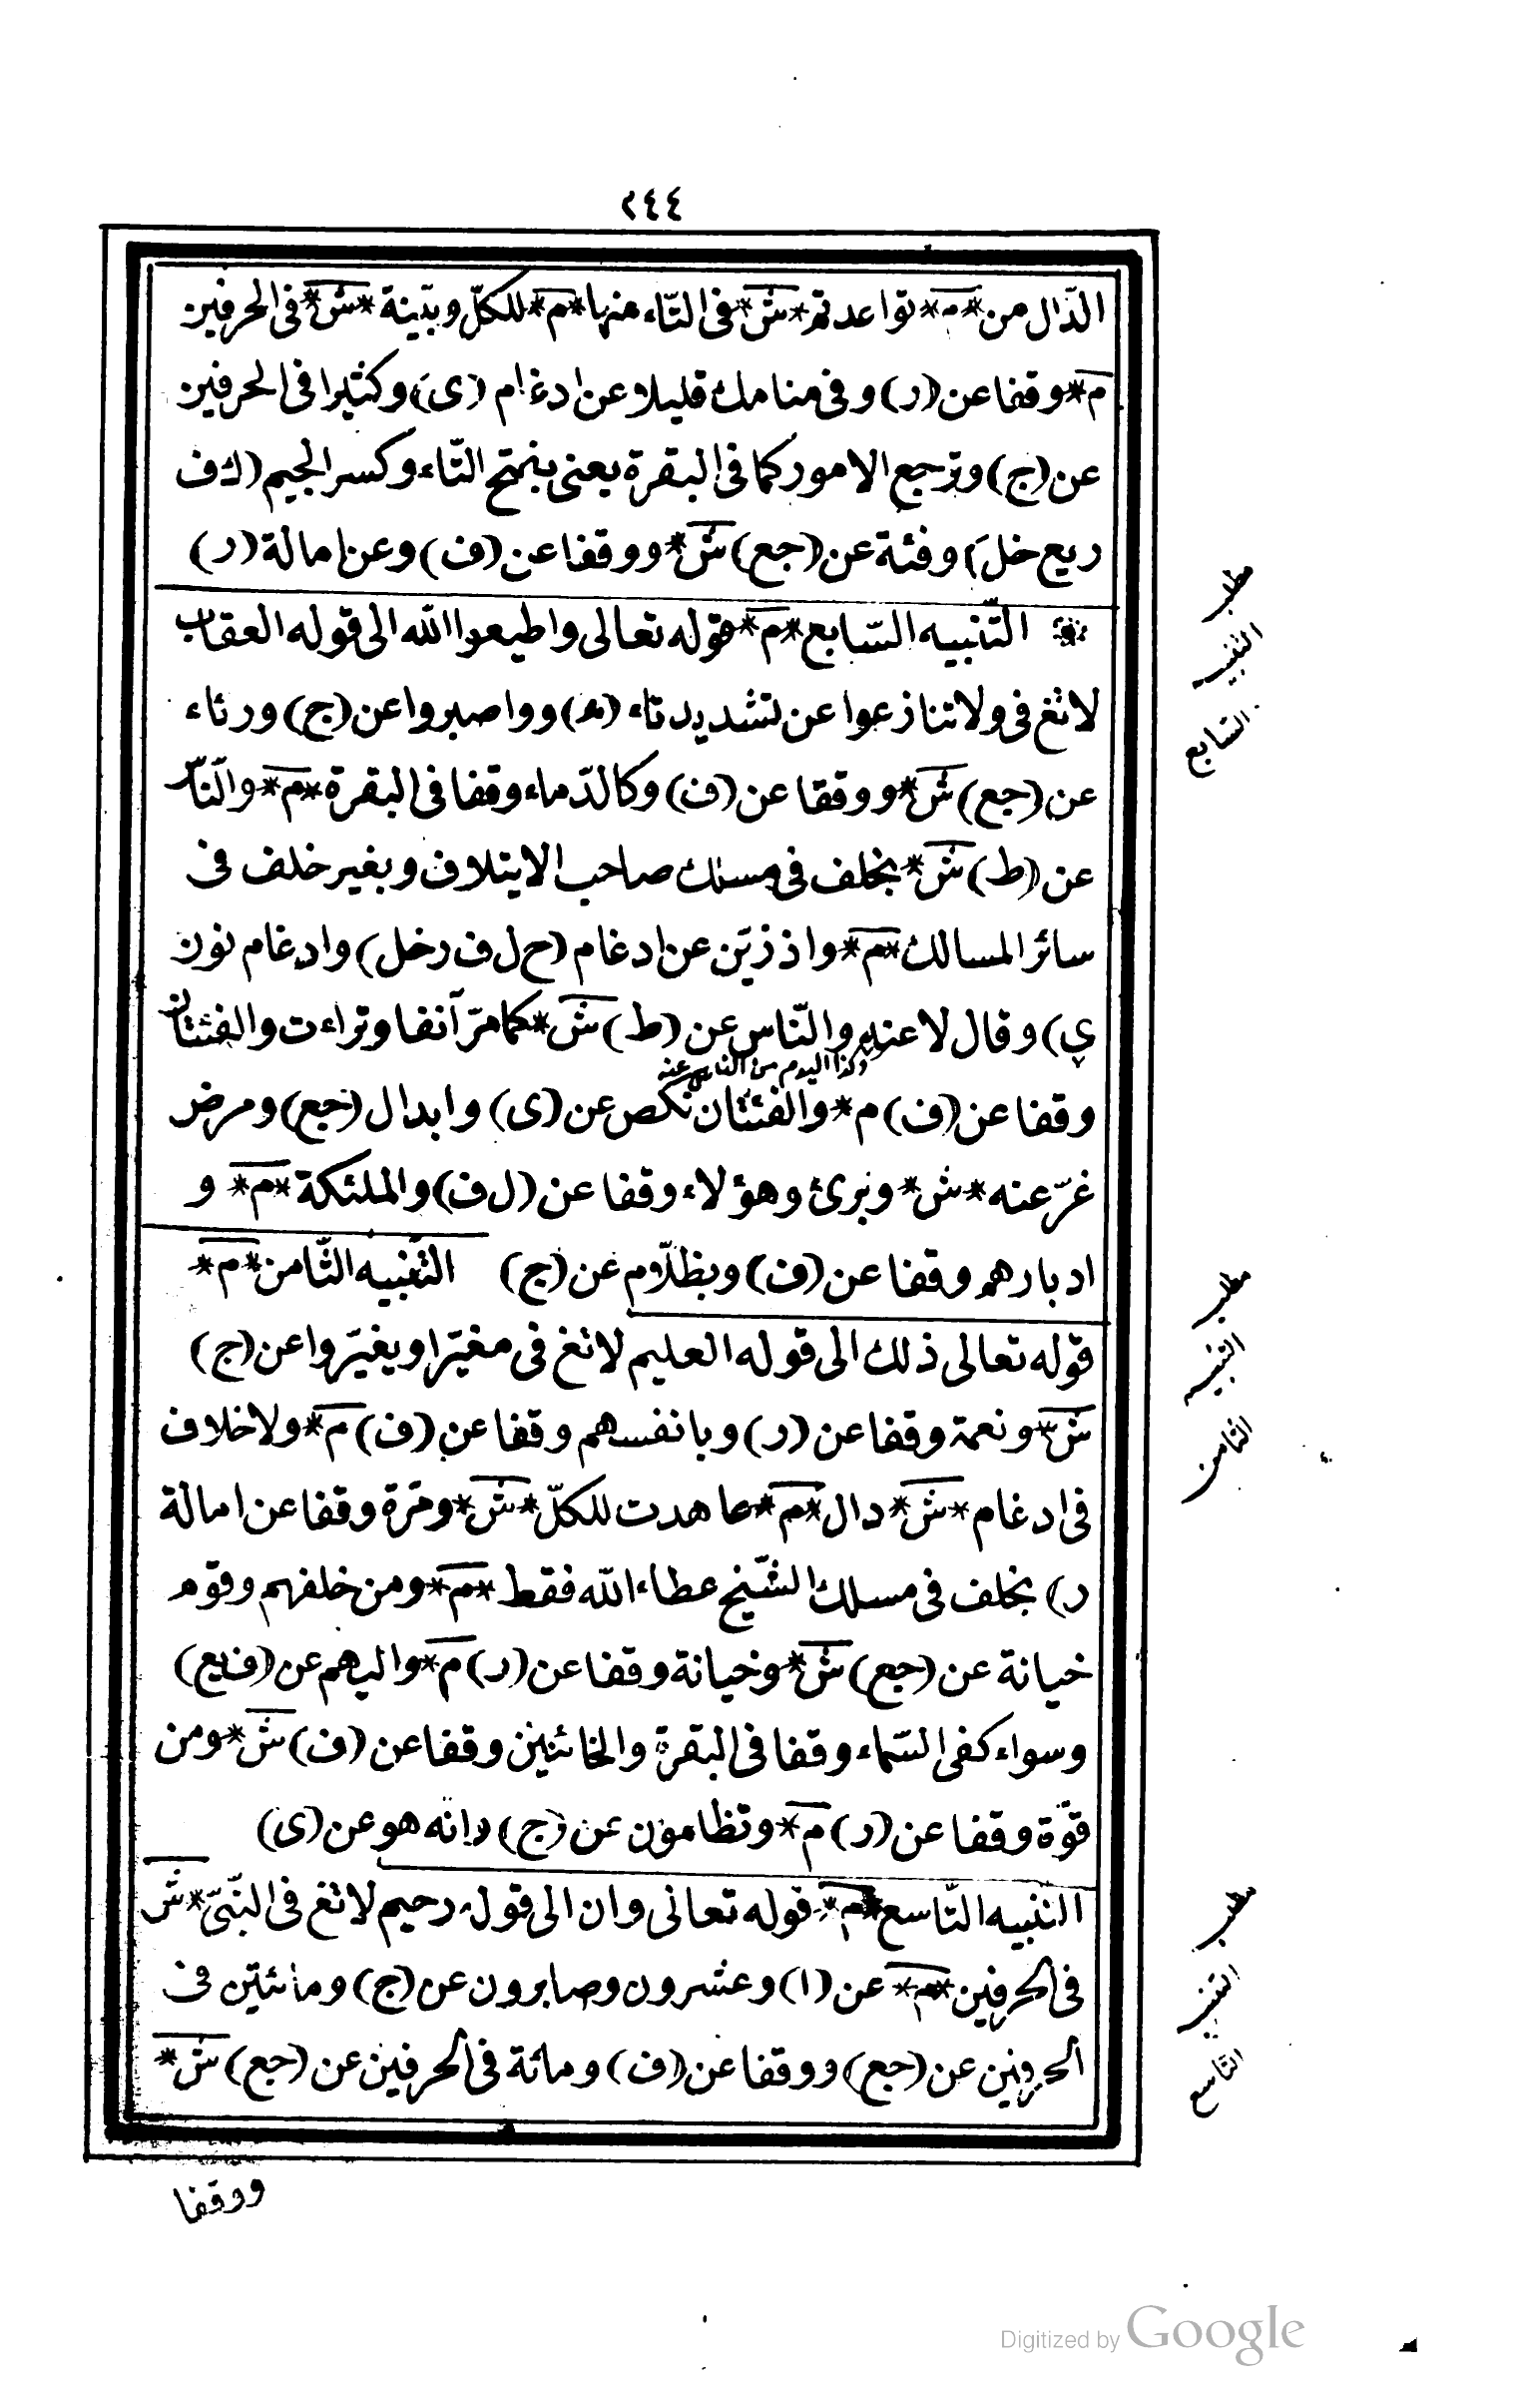 ٢٤٤
الدّال من *م* تواعدتم *ش* فى التّاء منها *م* للكلّ وبيّنة *ش* فى الحرفين
م* وقفا عن (ر) وفى منامك قليلا عن ادغام (ى) وكثيرا فى الحرفين
عن (ج) وترجع الامور كما فى البقرة يعنى بفتح التّاء وكسر الجيم (ك ف
ر يع خل) وفئة عن (جع) ش* ووقفا عن (ف) وعن امالة (ر)
التّنبيه السّابع *م* قوله تعالى واطيعوا الله الى قوله العقاب
لا تغ فى ولا تنازعوا عن تشديد تاء (ه) وواصبروا عن (ج) ورئاء
عن (جع) ش* ووقفا عن (ف) وكالدّماء وقفا فى البقرة *م* والنّاس
عن (ط) ش* بخلف فى مسلك صاحب الايتلاف وبغير خلف فى
سائر المسالك *م* واذ زيّن عن ادغام (ح ل ف ر خل) وادغام نون
ى) وقال لا عنه والنّاس عن (ط) ش* كما مرّ آنفا وتراءت والفئتان
وكذا اليوم من الناس عنه
وقفا عن (ف) م* والفئتان نكص عن (ى) وابدال (جع) ومرض
غرّ عنه *ش* وبرئ وهؤلاء وقفا عن (ل ف) والملئكة *م* و
ادبارهم وقفا عن (ف) وبظلّام عن (ج) التّنبيه الثّامن *م*
قوله تعالى ذلك الى قوله العليم لا تغ فى مغيّرا ويغيّروا عن (ج)
ش* ونعمة وقفا عن (ر) وبانفسهم وقفا عن (ف) م* ولا خلاف
فى ادغام *ش* دال *م* عاهدت للكلّ *ش* ومرّة وقفا عن امالة
ر) بخلف فى مسلك الشّيخ عطاء الله فقط *م* ومن خلفهم وقوم
خيانة عن (جع) ش* وخيانة وقفا عن (ر) م* واليهم عن (ف يع)
وسواء كفى السّماء وقفا فى البقرة والخائنين وقفا عن (ف) ش* ومن
قوّة وقفا عن (ر) م* وتظلمون عن (ج) وانه هو عن (ى)
التنبيه التّاسع *م* قوله تعالى وان الى قوله رحيم لا تغ فى النّبىّ *ش
فى الحرفين *م* عن (ا) وعشرون وصابرون عن (ج) ومائتين فى
الحرفين عن (جع) ووقفا عن (ف) ومائة فى الحرفين عن (جع) ش*
ووقفا
مطلب
التنبيه
السّابع
مطلب
التنبيه
الثّامن
مطلب
التنبيه
التّاسع
Digitized by Google